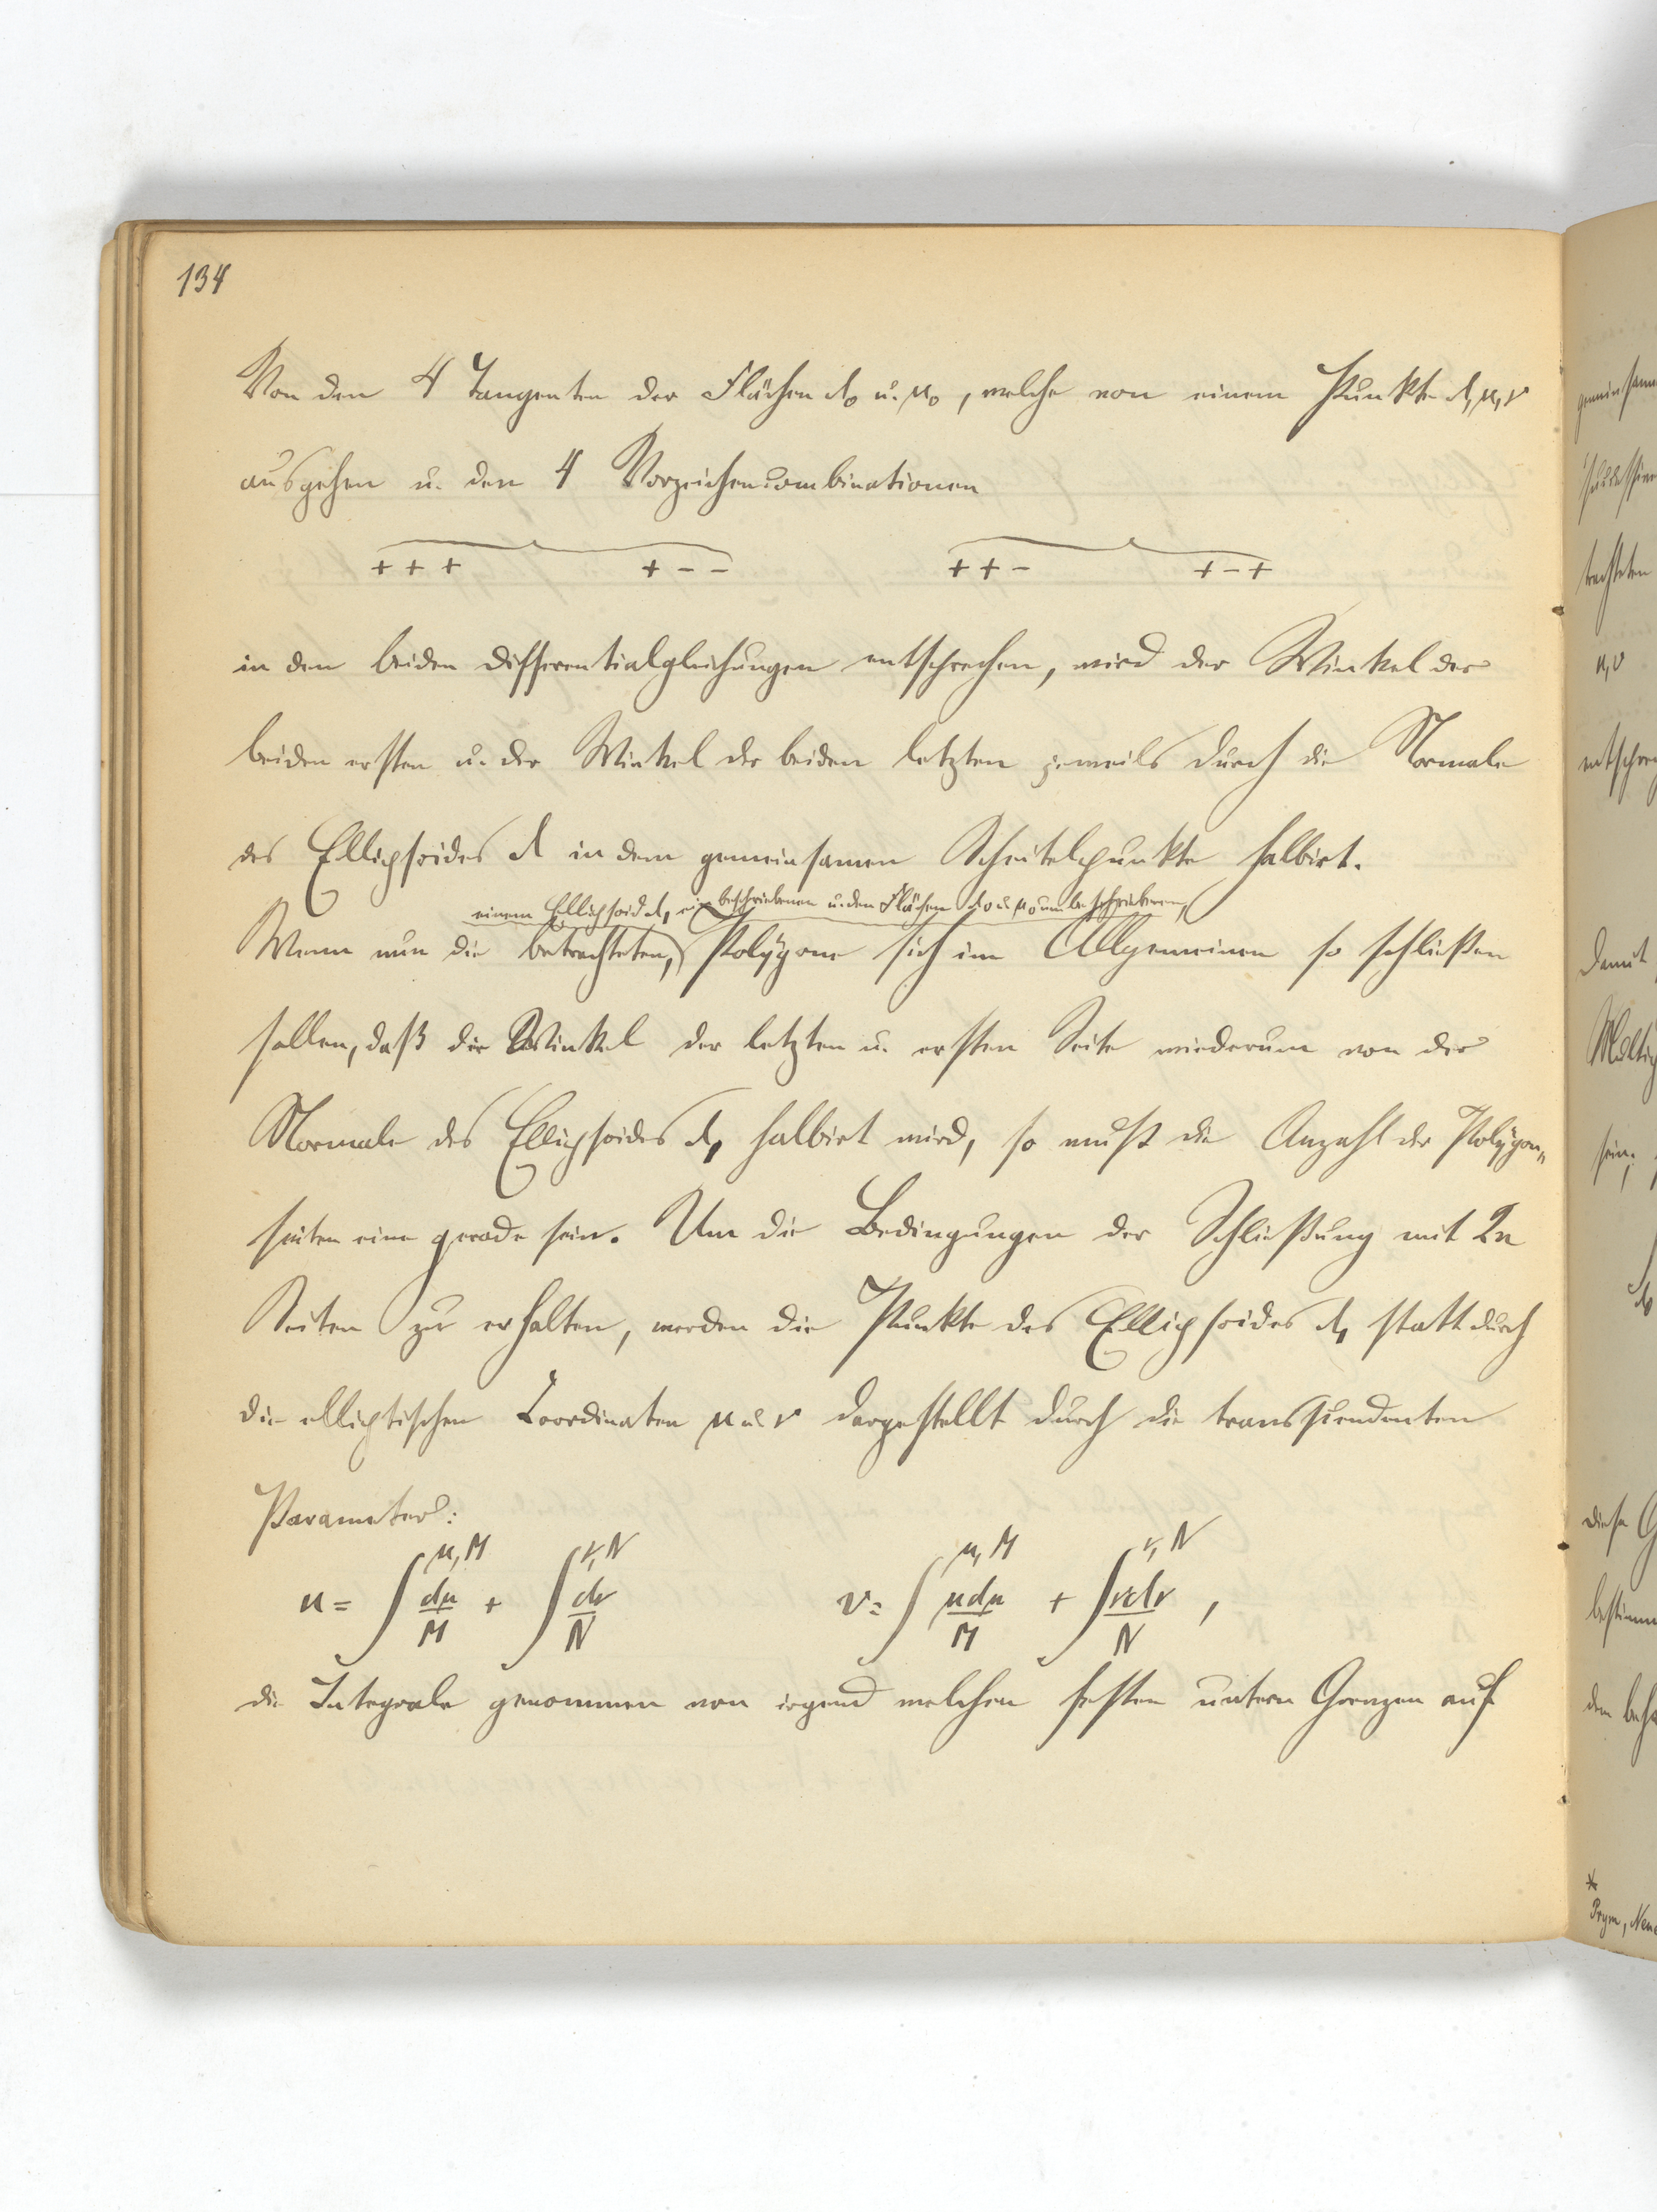 134
Von den 4 Tangenten der Flächen λ₀ u. μ₀, welche von einem Punkte λ, μ, ν
ausgehen u. den 4 Vorzeichencombinationen
+ + + + - - + + - + - +
in den beiden Differentialgleichungen entsprechen, wird der Winkel der
beiden ersten u. der Winkel der beiden letzten jeweils durch die Normale
des Ellipsoides λ in dem gemeinsamen Scheitelpunkte halbirt.
einem Ellipsoid λ₁ einbeschriebenen u. den Flächen λ₀ u. μ₀ umbeschriebenen,
Wenn nun die betrachteten, Polygone sich im Allgemeinen so schließen
sollen, daß der Winkel der letzten u. ersten Seite wiederum von der
Normale des Ellipsoides λ₁ halbirt wird, so muß die Anzahl der Polygon„
seiten eine gerade sein. Um die Bedingungen der Schließung mit 2n
Seiten zu erhalten, werden die Punkte des Ellipsoides λ₁ statt durch
die elliptischen Coordinaten μ u. ν dargestellt durch die transscendenten
Parameter:
u = ∫^{μ, M} dμ/M + ∫^{ν, N} dν/N v = ∫^{μ, M} μdμ/M + ∫^{ν, N} νdν/N ,
die Integrale genommen von irgend welchen festen untern Grenzen auf
gemeinsam
trachteten
μ, ν
entsprec
damit
Multip
sein;
λ₀
diese G
bestimm
*
Prym, Neue